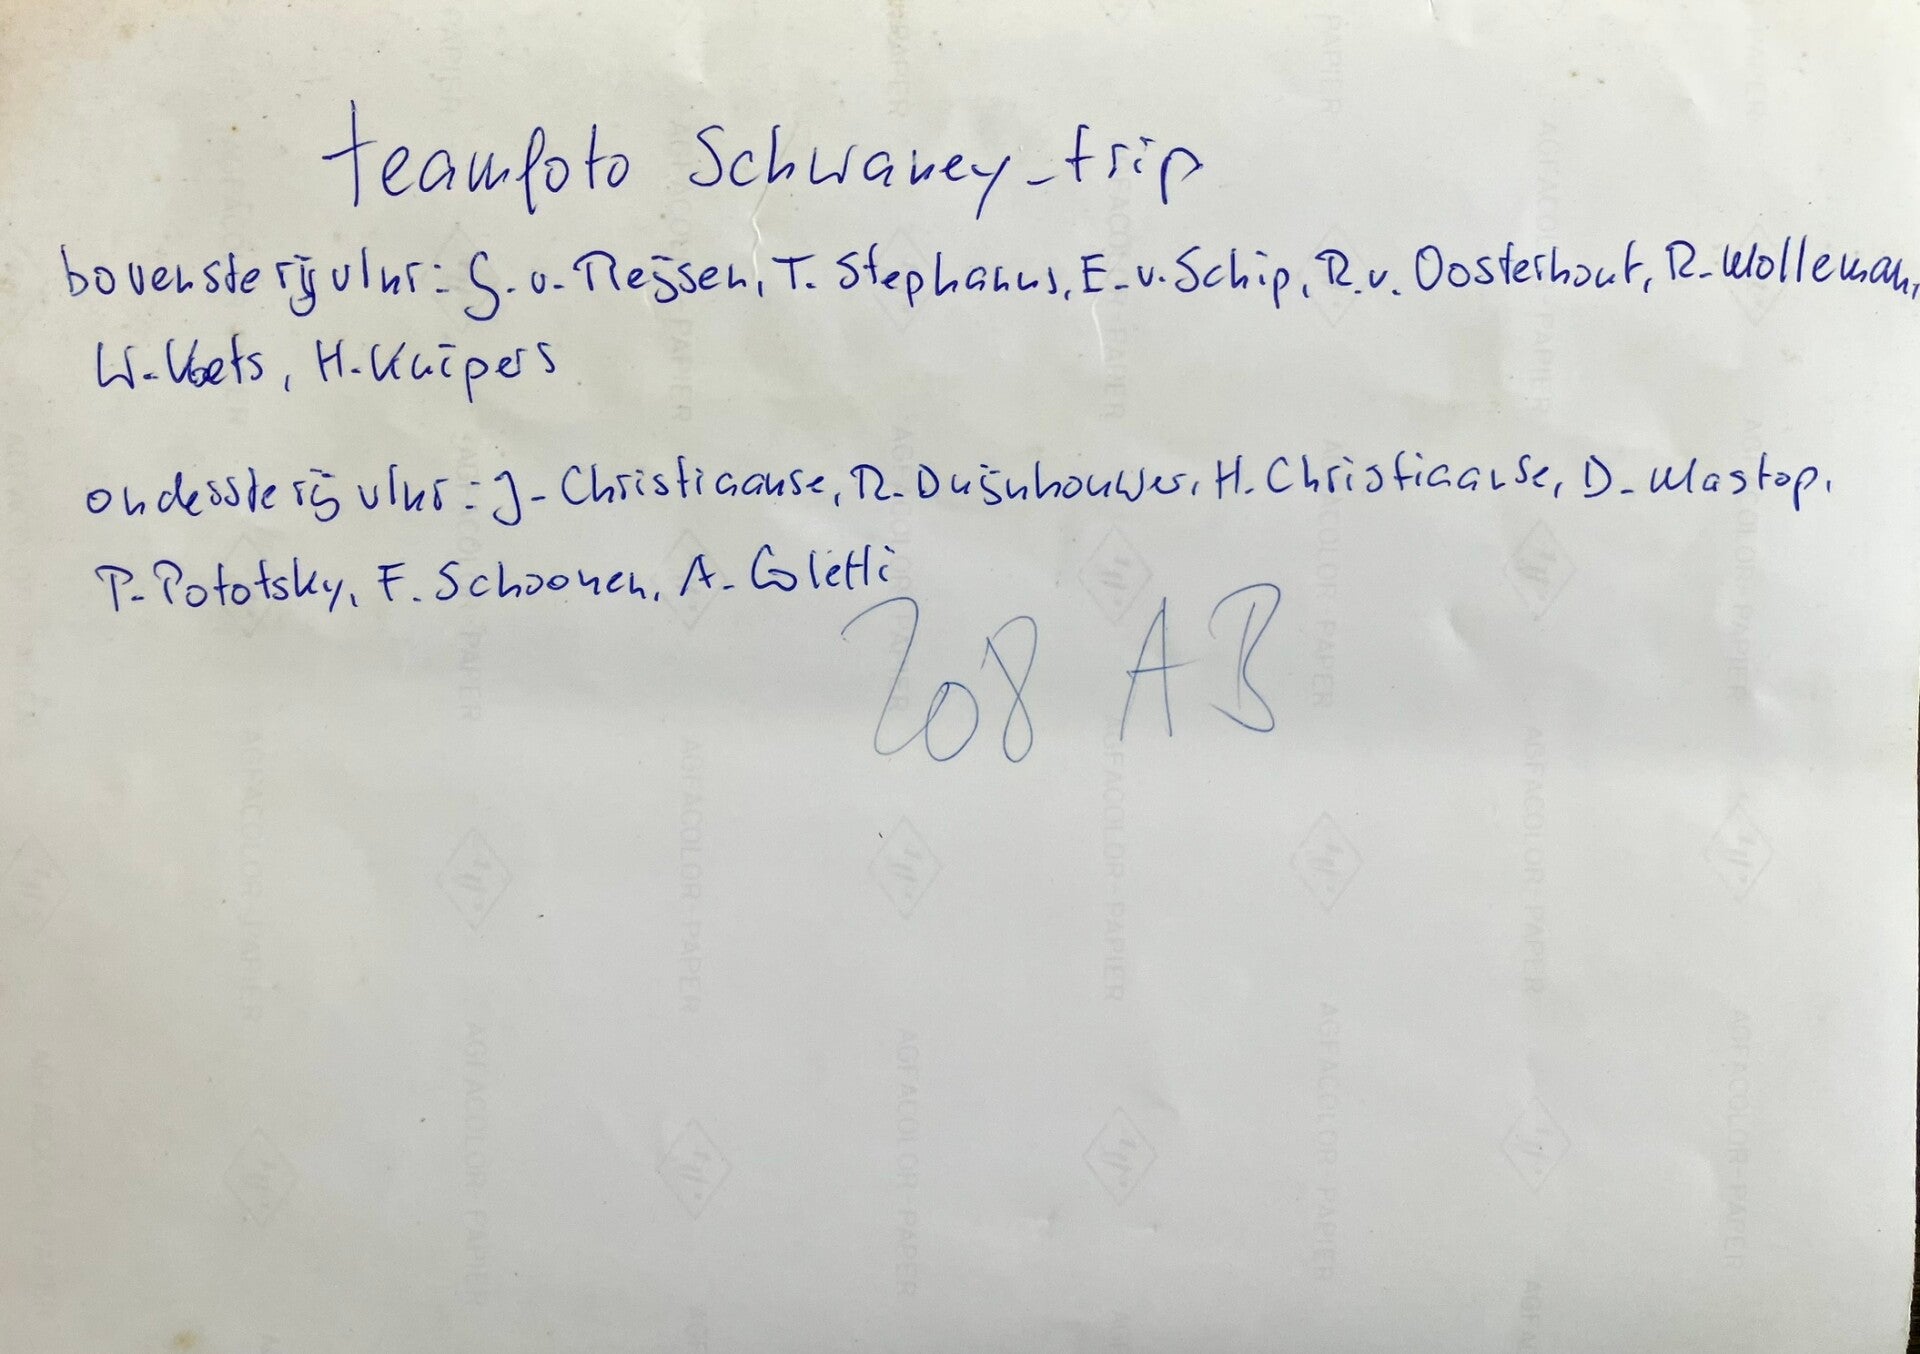 teamfoto Schwaney-trip
bovenste rij vlnr: G. v. Reijsen, T. Stephanus, E. v. Schip, R. v. Oosterhout, R. Molleman,
W. Voets, H. Kuipers
onderste rij vlnr: J. Christiaanse, R. Duijnhouwer, H. Christiaanse, D. Mastop,
P. Pototsky, F. Schoonen, A. Coletti
208 AB
AGFACOLOR-PAPIER